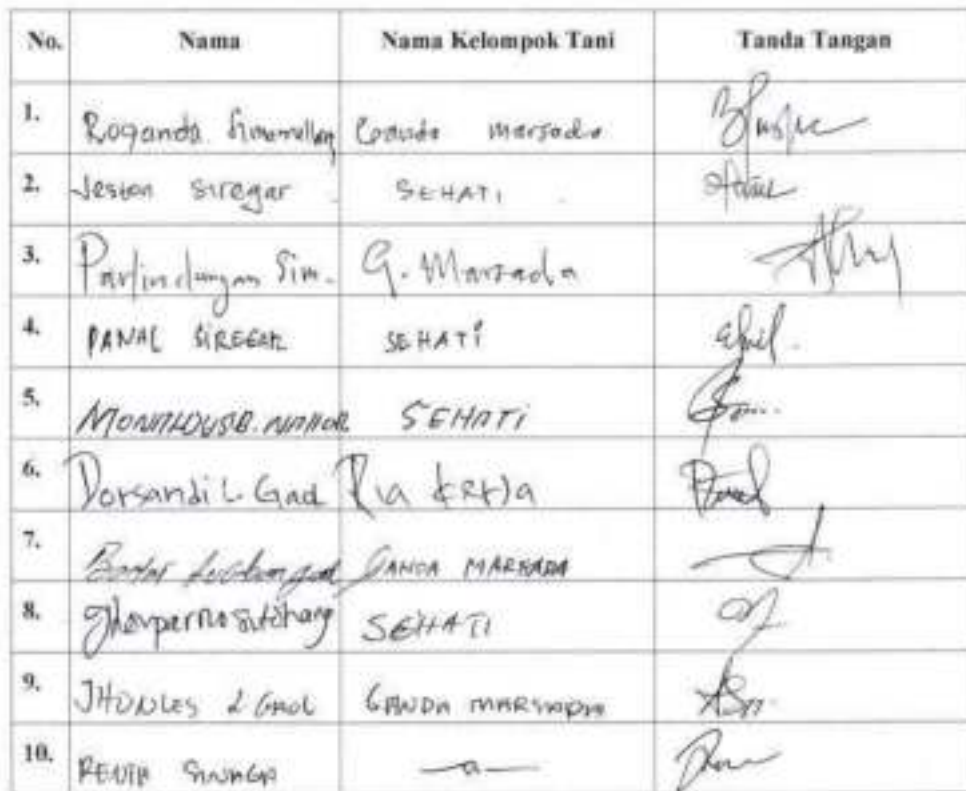 No. Nama Nama Kelompok Tani Tanda Tangan
1. Roganda Simamullang Ganda marsada
2. Jeston Siregar SEHATI
3. Parlindungan Sim. G. Marsada
4. PANAL SIREGAR SEHATI
5. SEHATI
6. Dorsandi L. Gaol Ria kerja
7. GANDA MARSADA
8. SEHATI
9. JHONLES L GAOL GANDA MARSADA
10. RENTA SINAGA —a—